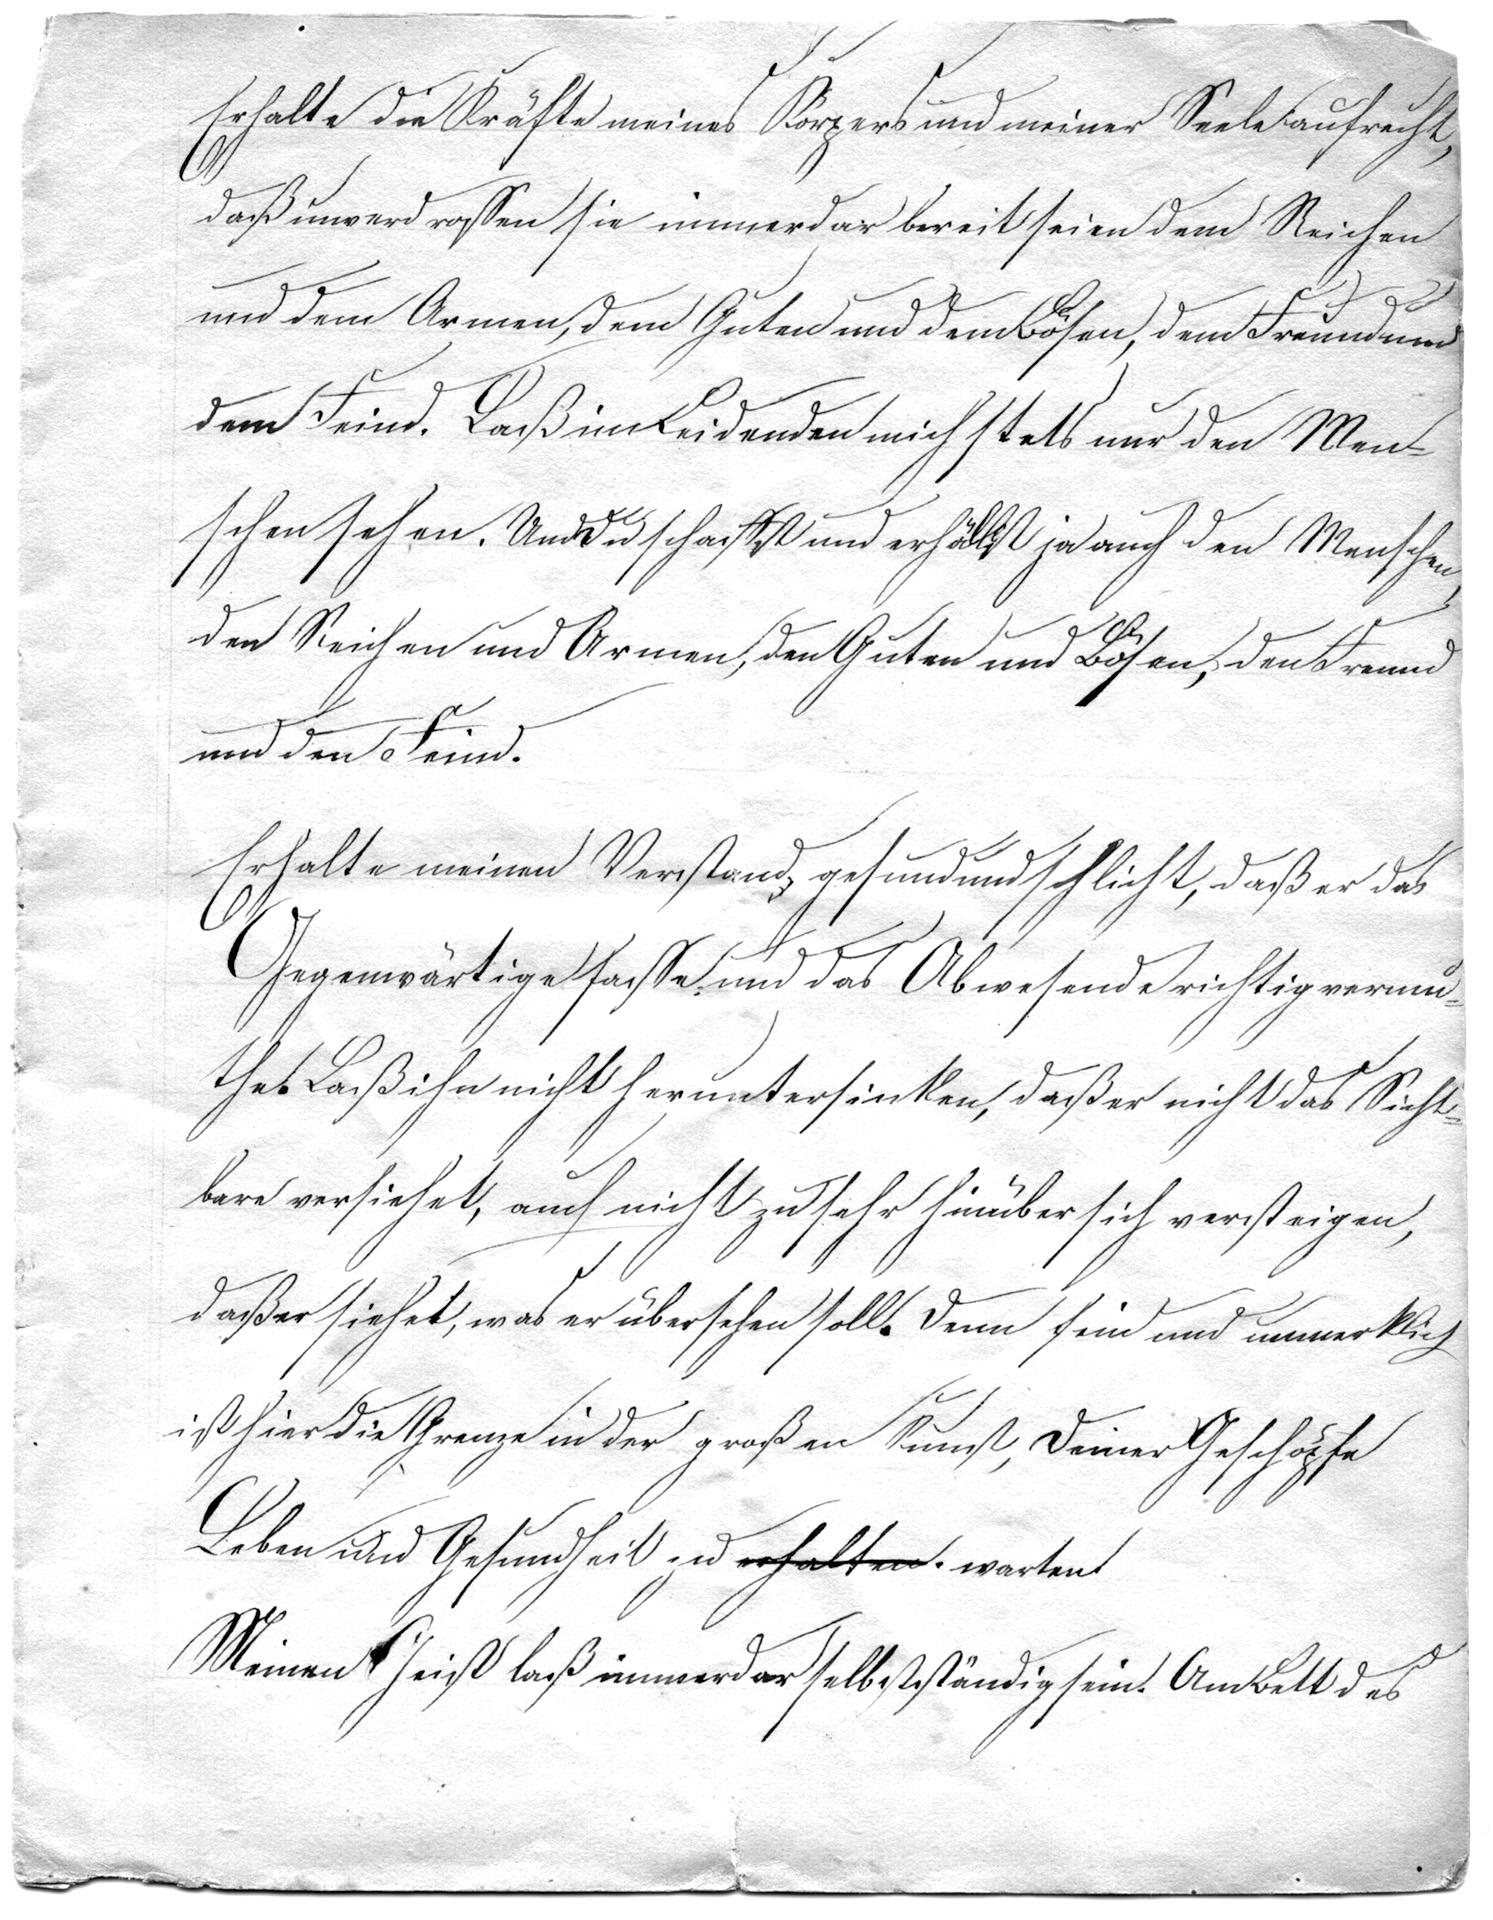 Erhalte die Kräfte meines Körpers und meiner Seele aufrecht,
daß unverdrossen sie immerdar bereit seien dem Reichen
und dem Armen, dem Guten und dem Bösen, dem Freund und
dem Feind. Laß im Leidenden mich stets nur den Men=
schen sehen. Und Du schaffst und erhältst ja auch den Menschen,
den Reichen und Armen, den Guten und Bösen, den Freund
und den Feind.
Erhalte meinen Verstand gesund und schlicht, daß er das
Gegenwärtige fasse und das Abwesende richtig vermu=
the. Laß ihn nicht heruntersinken, daß er nicht das Sicht=
bare versiehet, auch nicht zu sehr hinüber sich versteigen,
daß er siehet, was er übersehen soll. Denn fein und unmerklich
ist hier die Grenze in der großen Kunst, Deiner Geschöpfe
Leben und Gesundheit zu erhalten. warten!
Meinen Geist laß immerdar selbstständig sein. Am Bett des